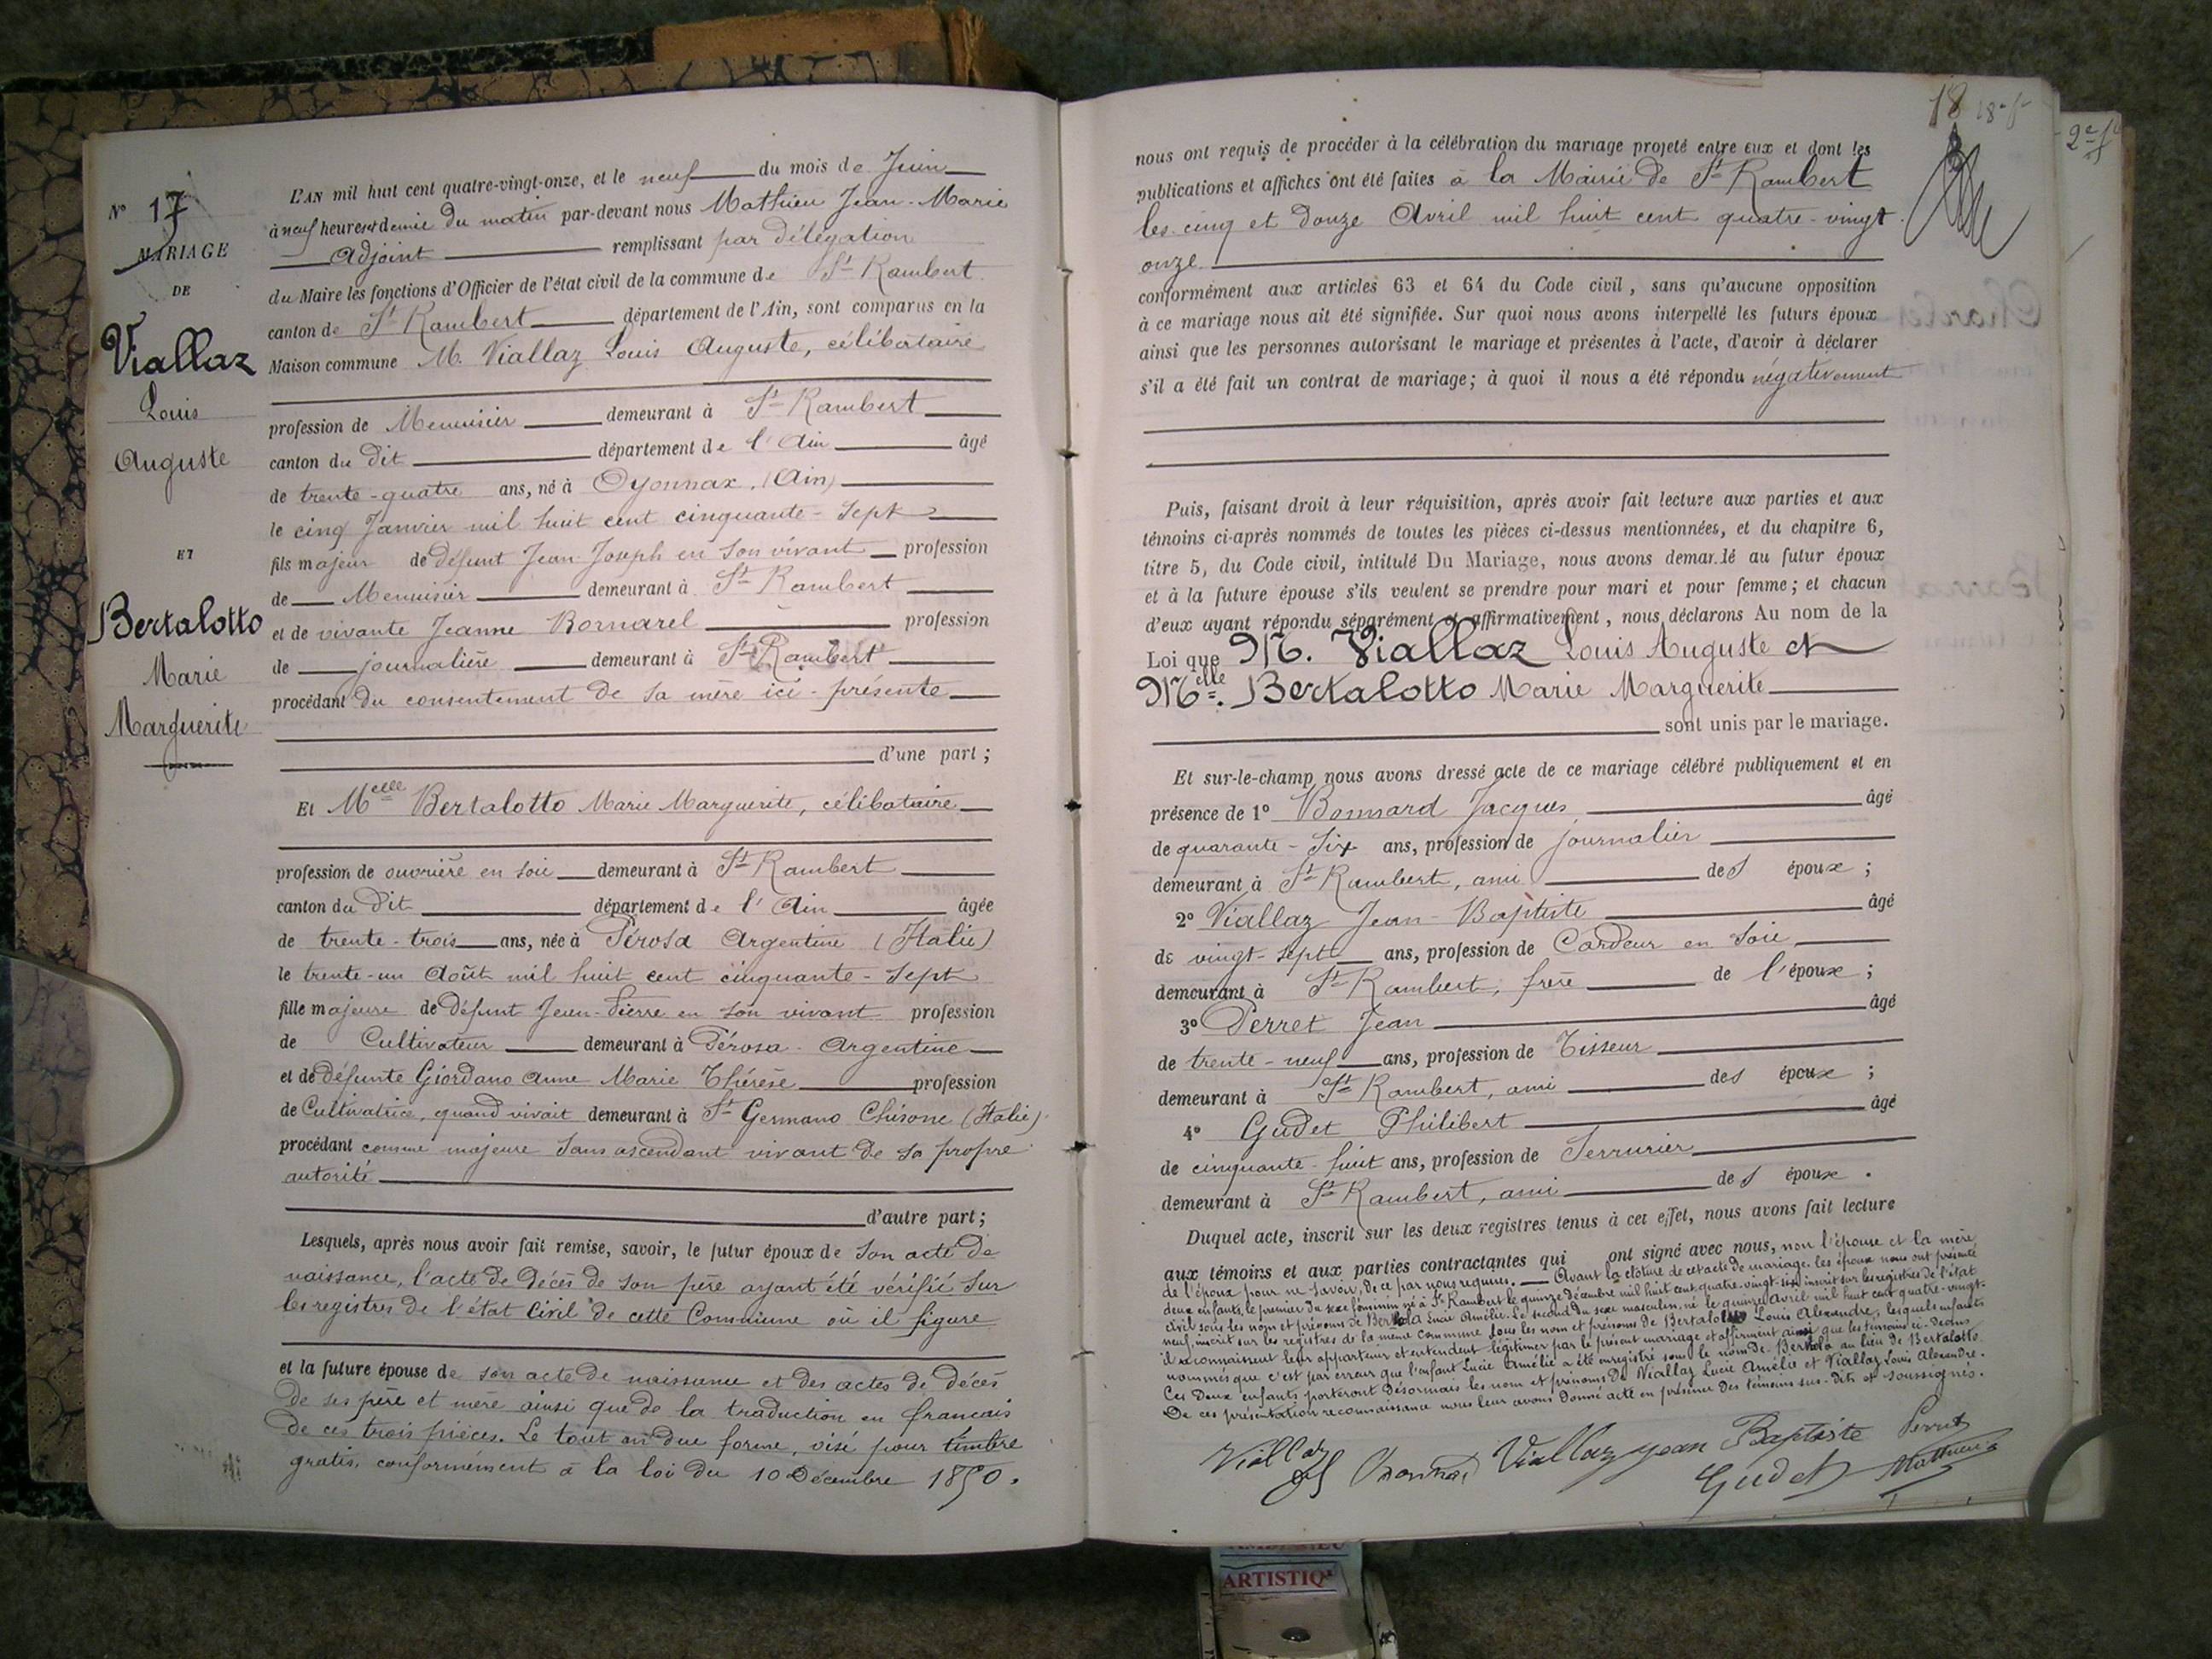 N° 17
MARIAGE
DE
Viallaz
Louis
Auguste
ET
Bertalotto
Marie
Marguerite
L'AN mil huit cent quatre-vingt-onze, et le neuf du mois de Juin
à neuf heures et demie du matin par-devant nous Mathieu Jean-Marie
Adjoint remplissant par délégation
du Maire les fonctions d'Officier de l'état civil de la commune de St Rambert
canton de St Rambert département de l'Ain, sont comparus en la
Maison commune M. Viallaz Louis Auguste, célibataire
profession de Menuisier demeurant à St Rambert
canton du dit département de l'Ain âgé
de trente-quatre ans, né à Oyonnax (Ain)
le cinq Janvier mil huit cent cinquante-sept
fils majeur de défunt Jean-Joseph en son vivant profession
de Menuisier demeurant à St Rambert
et de vivante Jeanne Bornarel profession
de journalière demeurant à St Rambert
procédant du consentement de sa mère ici-présente
d'une part ;
Et Melle Bertalotto Marie Marguerite, célibataire
profession de ouvrière en soie demeurant à St Rambert
canton du dit département de l'Ain âgée
de trente-trois ans, née à Pérosa Argentine (Italie)
le trente-un Août mil huit cent cinquante-sept
fille majeure de défunt Jean-Pierre en son vivant profession
de Cultivateur demeurant à Pérosa-Argentine
et de défunte Giordano Anne Marie Thérèse profession
de Cultivatrice, quand vivait demeurant à St Germano Chisone (Italie)
procédant comme majeure sans ascendant vivant de sa propre
autorité
d'autre part ;
Lesquels, après nous avoir fait remise, savoir, le futur époux de son acte de
naissance, l'acte de décès de son père ayant été vérifié sur
les registres de l'état civil de cette Commune où il figure
et la future épouse de son acte de naissance et des actes de décès
de ses père et mère ainsi que de la traduction en français
de ces trois pièces. Le tout en due forme, visé pour timbre
gratis, conformément à la loi du 10 Décembre 1850.
18 18e f
2e f
nous ont requis de procéder à la célébration du mariage projeté entre eux et dont les
publications et affiches ont été faites à la Mairie de St Rambert
les cinq et douze Avril mil huit cent quatre-vingt
onze
conformément aux articles 63 et 64 du Code civil, sans qu'aucune opposition
à ce mariage nous ait été signifiée. Sur quoi nous avons interpellé les futurs époux
ainsi que les personnes autorisant le mariage et présentes à l'acte, d'avoir à déclarer
s'il a été fait un contrat de mariage; à quoi il nous a été répondu négativement
Puis, faisant droit à leur réquisition, après avoir fait lecture aux parties et aux
témoins ci-après nommés de toutes les pièces ci-dessus mentionnées, et du chapitre 6,
titre 5, du Code civil, intitulé Du Mariage, nous avons demandé au futur époux
et à la future épouse s'ils veulent se prendre pour mari et pour femme; et chacun
d'eux ayant répondu séparément et affirmativement, nous déclarons Au nom de la
Loi que M. Viallaz Louis Auguste et
Melle. Bertalotto Marie Marguerite
sont unis par le mariage.
Et sur-le-champ nous avons dressé acte de ce mariage célébré publiquement et en
présence de 1° Bonnard Jacques âgé
de quarante-six ans, profession de journalier
demeurant à St Rambert, ami des époux ;
2° Viallaz Jean-Baptiste âgé
de vingt-sept ans, profession de Cardeur en soie
demeurant à St Rambert, frère de l'époux ;
3° Perret Jean âgé
de trente-neuf ans, profession de Tisseur
demeurant à St Rambert, ami des époux ;
4° Gudet Philibert âgé
de cinquante-huit ans, profession de Serrurier
demeurant à St Rambert, ami des époux .
Duquel acte, inscrit sur les deux registres tenus à cet effet, nous avons fait lecture
aux témoins et aux parties contractantes qui ont signé avec nous, non l'épouse et la mère
de l'époux pour ne savoir, de ce par nous requises. Avant la clôture de cet acte de mariage, les époux nous ont présenté
deux enfants, le premier du sexe féminin né à St Rambert le quinze décembre mil huit cent quatre-vingt-six inscrit sur les registres de l'état
civil sous les nom et prénoms de Bertola Lucie Amélie. Le second du sexe masculin, né le quinze Avril mil huit cent quatre-vingt-
neuf, inscrit sur les registres de la même commune sous les nom et prénoms de Bertalotto Louis Alexandre, lesquels enfants
ils reconnaissent leur appartenir et entendent légitimer par le présent mariage et affirment ainsi que les témoins ci-dessus
nommés que c'est par erreur que l'enfant Lucie Amélie a été enregistré sous le nom de Bertola au lieu de Bertalotto.
Ces deux enfants porteront désormais les nom et prénoms de Viallaz Lucie Amélie et Viallaz Louis Alexandre.
De ces présentation reconnaissance nous leur avons donné acte en présence des témoins sus-dits et soussignés.
Viallaz Bonnard Viallaz Jean Baptiste Perret
Gudet Mathieu
ARTISTIQ